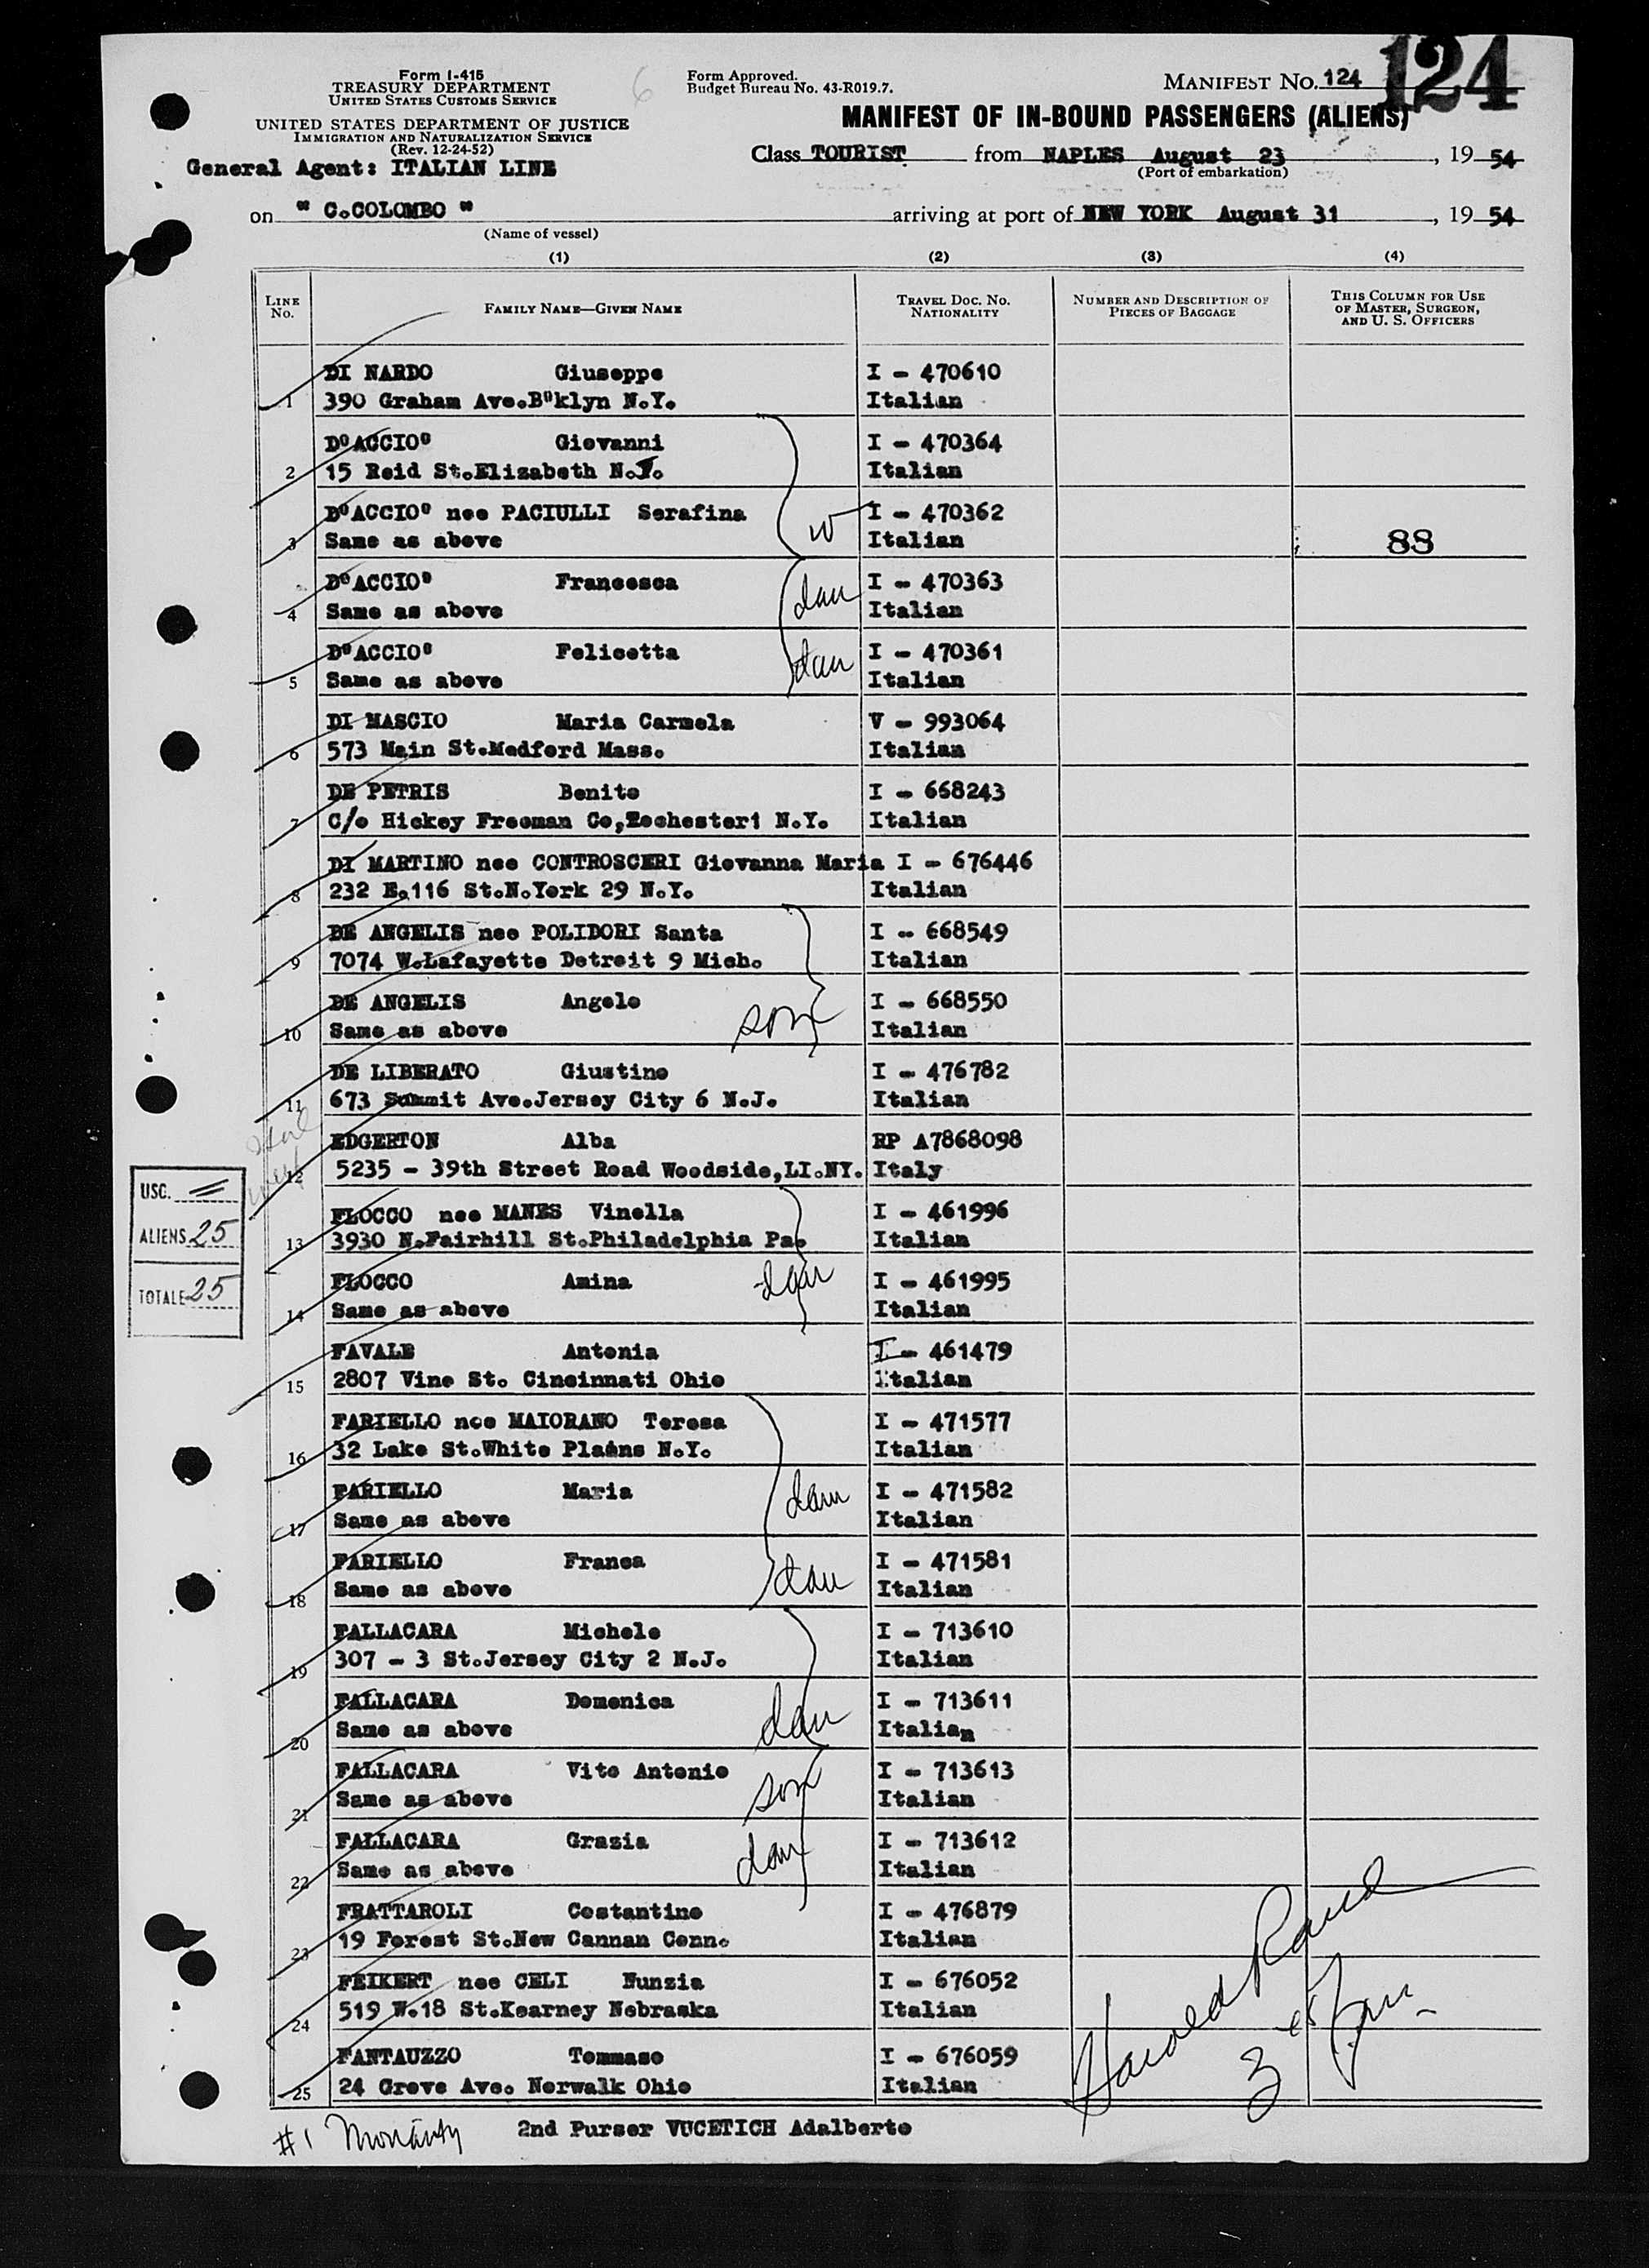 124
Form I-415
TREASURY DEPARTMENT
UNITED STATES CUSTOMS SERVICE
UNITED STATES DEPARTMENT OF JUSTICE
IMMIGRATION AND NATURALIZATION SERVICE
(Rev. 12-24-52)
General Agent: ITALIAN LINE
6
Form Approved.
Budget Bureau No. 43-R019.7.
MANIFEST No. 124
MANIFEST OF IN-BOUND PASSENGERS (ALIENS)
Class TOURIST from NAPLES August 23, 19 54
(Port of embarkation)
on " C.COLOMBO " arriving at port of NEW YORK August 31, 19 54
(Name of vessel)
(1) (2) (3) (4)
LINE No. FAMILY NAME—GIVEN NAME TRAVEL DOC. NO. NATIONALITY NUMBER AND DESCRIPTION OF PIECES OF BAGGAGE THIS COLUMN FOR USE OF MASTER, SURGEON, AND U. S. OFFICERS
DI NARDO Giuseppe I - 470610
1 390 Graham Ave.B"klyn N.Y. Italian
D'ACCIO' Giovanni I - 470364
2 15 Reid St.Elizabeth N.J. Italian
D'ACCIO' nee PACIULLI Serafina w I - 470362
3 Same as above Italian 88
D'ACCIO' Francesca dau I - 470363
4 Same as above Italian
D'ACCIO' Felicetta dau I - 470361
5 Same as above Italian
DI MASCIO Maria Carmela V - 993064
6 573 Main St.Medford Mass. Italian
DE PETRIS Benito I - 668243
7 C/o Hickey Freeman Co,Rochester1 N.Y. Italian
DI MARTINO nee CONTROSCERI Giovanna Maria I - 676446
8 232 E.116 St.N.York 29 N.Y. Italian
DE ANGELIS nee POLIDORI Santa I - 668549
9 7074 W.Lafayette Detroit 9 Mich. Italian
DE ANGELIS Angelo son I - 668550
10 Same as above Italian
DE LIBERATO Giustino I - 476782
11 673 Summit Ave.Jersey City 6 N.J. Italian
EDGERTON Alba RP A7868098
12 5235 - 39th Street Road Woodside,LI.NY. Italy
FLOCCO nee MANES Vinella I - 461996
13 3930 N.Fairhill St.Philadelphia Pa. Italian
FLOCCO Amina dau I - 461995
14 Same as above Italian
FAVALE Antonia I - 461479
15 2807 Vine St. Cincinnati Ohio Italian
FARIELLO nee MAIORANO Teresa I - 471577
16 32 Lake St.White Plains N.Y. Italian
FARIELLO Maria dau I - 471582
17 Same as above Italian
FARIELLO Franca dau I - 471581
18 Same as above Italian
FALLACARA Michele I - 713610
19 307 - 3 St.Jersey City 2 N.J. Italian
FALLACARA Domenica dau I - 713611
20 Same as above Italian
FALLACARA Vito Antonio son I - 713613
21 Same as above Italian
FALLACARA Grazia dau I - 713612
22 Same as above Italian
FRATTAROLI Costantino I - 476879
23 19 Forest St.New Cannan Conn. Italian
FEIKERT nee CELI Nunzia I - 676052
24 519 W.18 St.Kearney Nebraska Italian
FANTAUZZO Tommaso I - 676059
25 24 Grove Ave. Norwalk Ohio Italian
USC.
ALIENS 25
TOTALE 25
Harold
#1 Moriarity 2nd Purser VUCETICH Adalberto